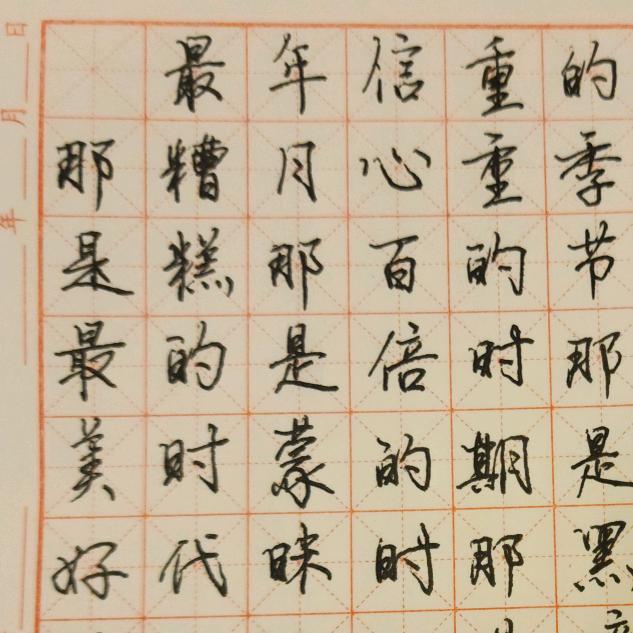 日月年
那是最美好
最糟糕的时代
年月那是蒙昧
信心百倍的时
重重的时期那
的季节那是黑